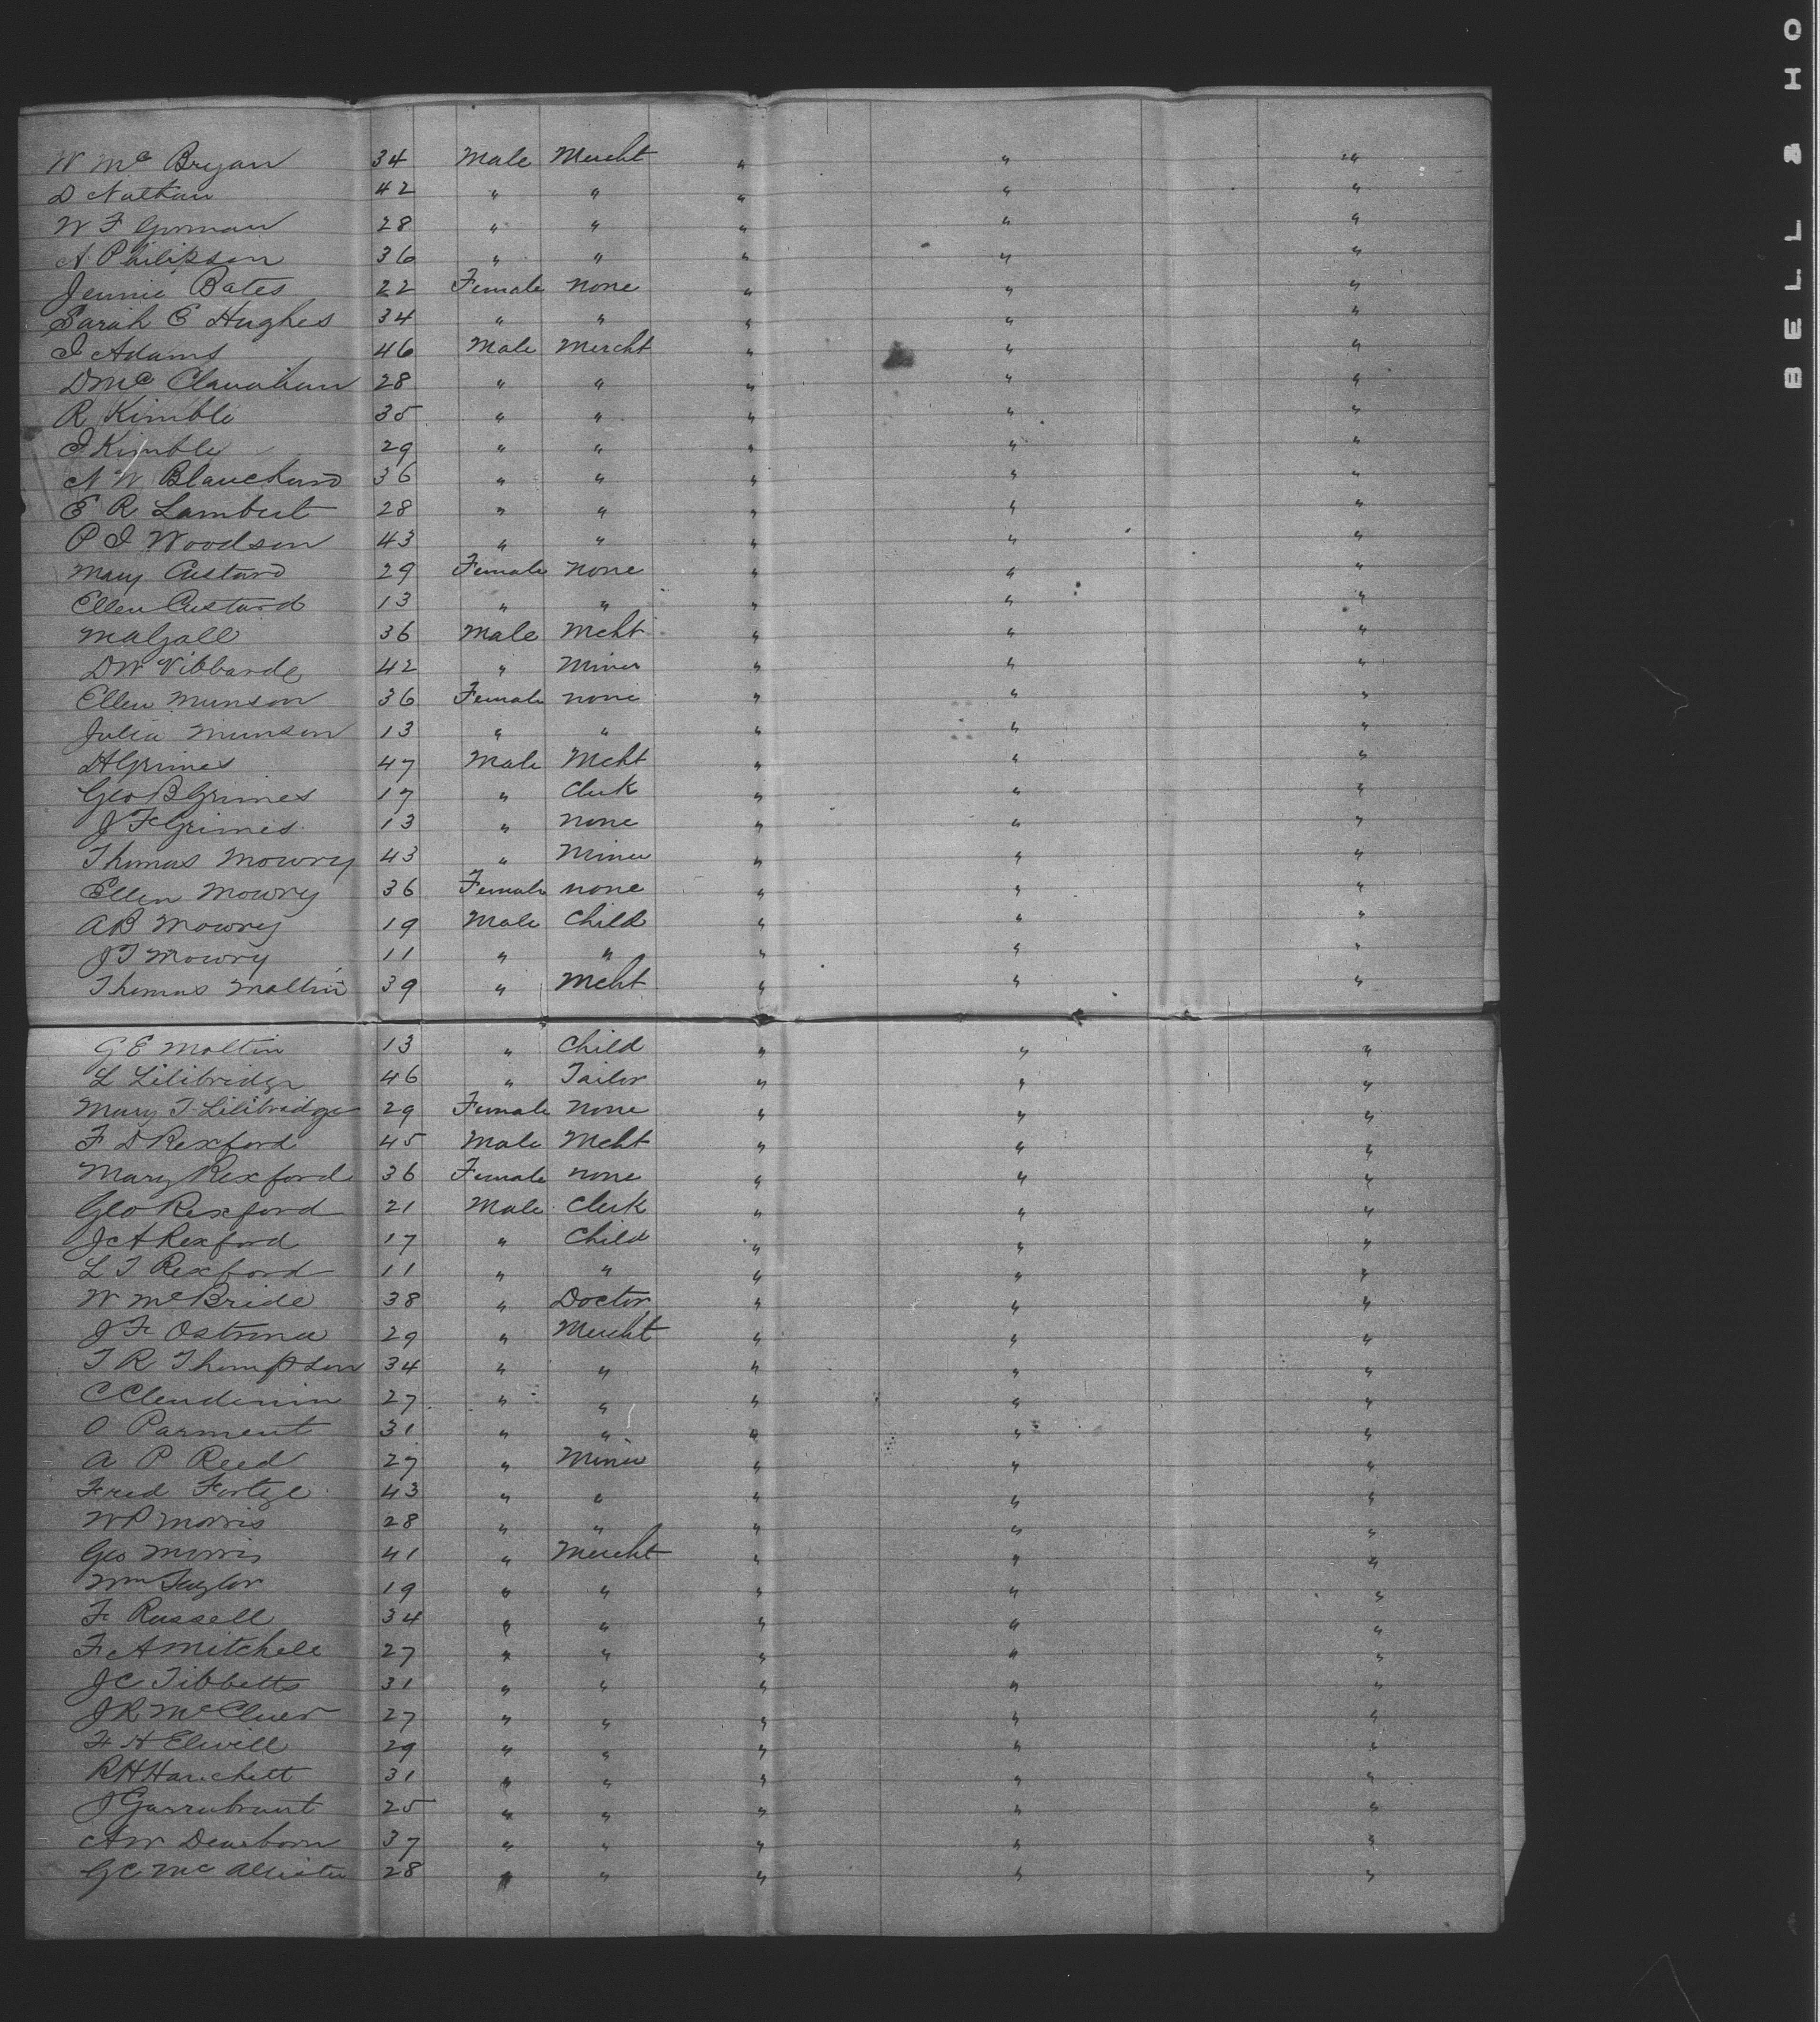 W Mc Bryan 34 Male Mercht " " "
D Nathan 42 " " " " "
W F Gorman 28 " " " " "
A Philipson 36 " " " " "
Jennie Bates 22 Female none " " "
Sarah E Hughes 34 " " " " "
I Adams 46 Male Mercht " " "
D Mc Clanahan 28 " " " " "
R Kimble 35 " " " " "
I Kimble 29 " " " " "
N W Blanchard 36 " " " " "
E R Lambert 28 " " " " "
P I Woodson 43 " " " " "
Mary Custard 29 Female none " " "
Ellen Custard 13 " " " " "
36 Male Mcht " " "
D W Vibbarde 42 " Miner " " "
Ellen Munson 36 Female none " " "
Julia Munson 13 " " " " "
Grimes 47 Male Mcht " " "
Geo B Grimes 17 " Clerk " " "
J F Grimes 13 " none " " "
Thomas Mowry 43 " Miner " " "
Ellen Mowry 36 Female none " " "
A B Mowry 19 Male Child " " "
J T Mowry 11 " " " " "
Thomas Moltin 39 " Mcht " " "
G E Moltin 13 " Child " " "
L Lilibridge 46 " Tailor " " "
Mary T Lilibridge 29 Female none " " "
F D Rexford 45 Male Mcht " " "
Mary Rexford 36 Female none " " "
Geo Rexford 21 Male Clerk " " "
J A Rexford 17 " Child " " "
L T Rexford 11 " " " " "
W McBride 38 " Doctor " " "
J F 29 " Mercht " " "
T R Thompson 34 " " " " "
C Clendenin 27 " " " " "
O Parment 31 " " " " "
A P Reed 27 " Miner " " "
Fred 43 " " " " "
W P Morris 28 " " " " "
Geo Morris 41 " Mercht " " "
Wm Taylor 19 " " " " "
F Russell 34 " " " " "
F A Mitchell 27 " " " " "
J C Tibbetts 31 " " " " "
J R McCluer 27 " " " " "
F H Elwill 29 " " " " "
R H Hanchett 31 " " " " "
J Garrabrant 25 " " " " "
A W Dearborn 37 " " " " "
G C Mc Allister 28 " " " " "
BELL & HO